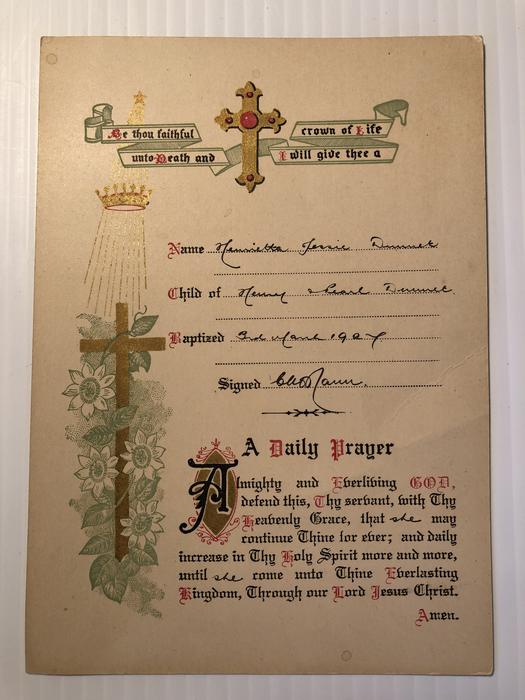 Be thou faithful
unto Death and
I will give thee a
crown of Life
Name Henrietta Jessie Dummet
Child of Henry & Pearl Dummet
Baptized 3rd March 1927
Signed
A Daily Prayer
Almighty and Everliving GOD,
defend this, Thy servant, with Thy
Heavenly Grace, that she may
continue Thine for ever; and daily
increase in Thy Holy Spirit more and more,
until she come unto Thine Everlasting
Kingdom, Through our Lord Jesus Christ.
Amen.